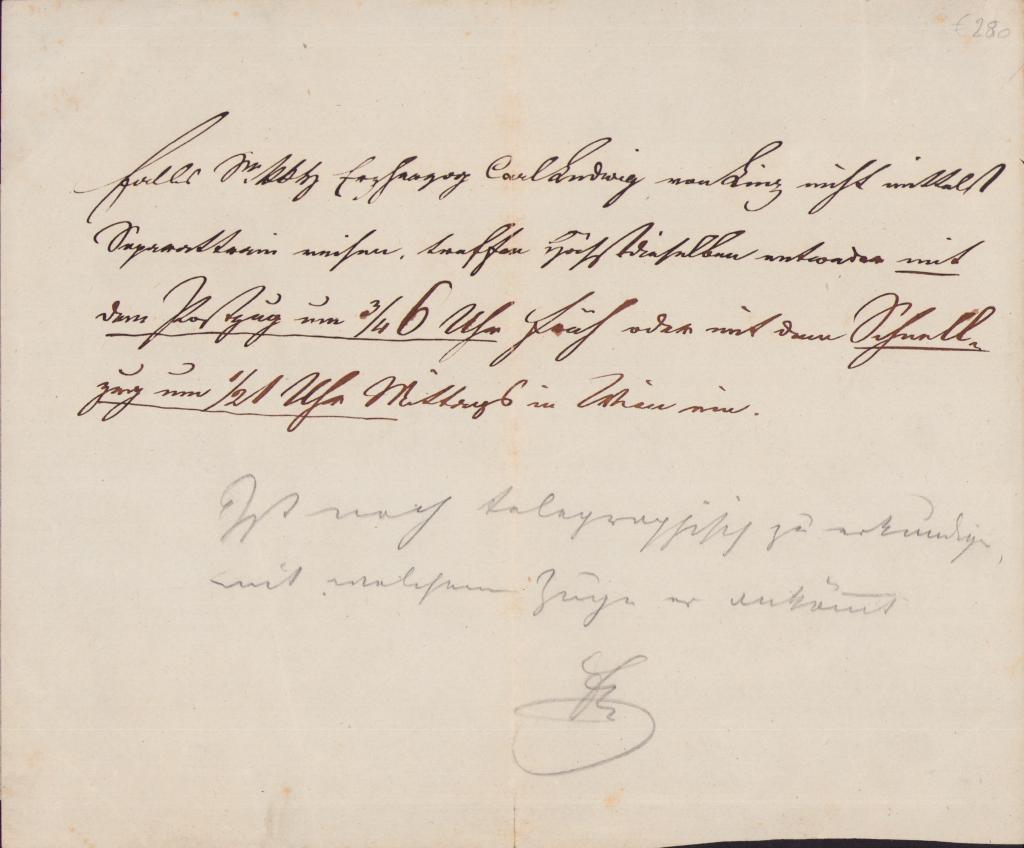 € 280
Falls Se. kk Erzherzog Carl Ludwig von Linz nicht mittelst
Separattrain reisen, treffen Höchstdieselben entweder mit
dem Postzug um 3/4 6 Uhr früh oder mit dem Schnell-
zug um 1/2 1 Uhr Mittags in Wien ein.
Ist noch telegraphisch zu erkundigen,
mit welchem Zuge er ankömmt